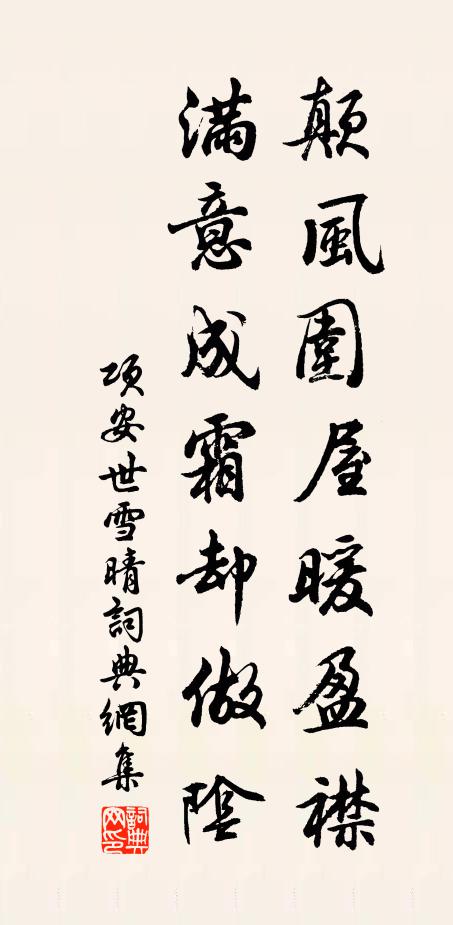 顛風圍屋暖盈襟
滿意成霜却做陰
項安世雪晴詞典網集
詞典网印